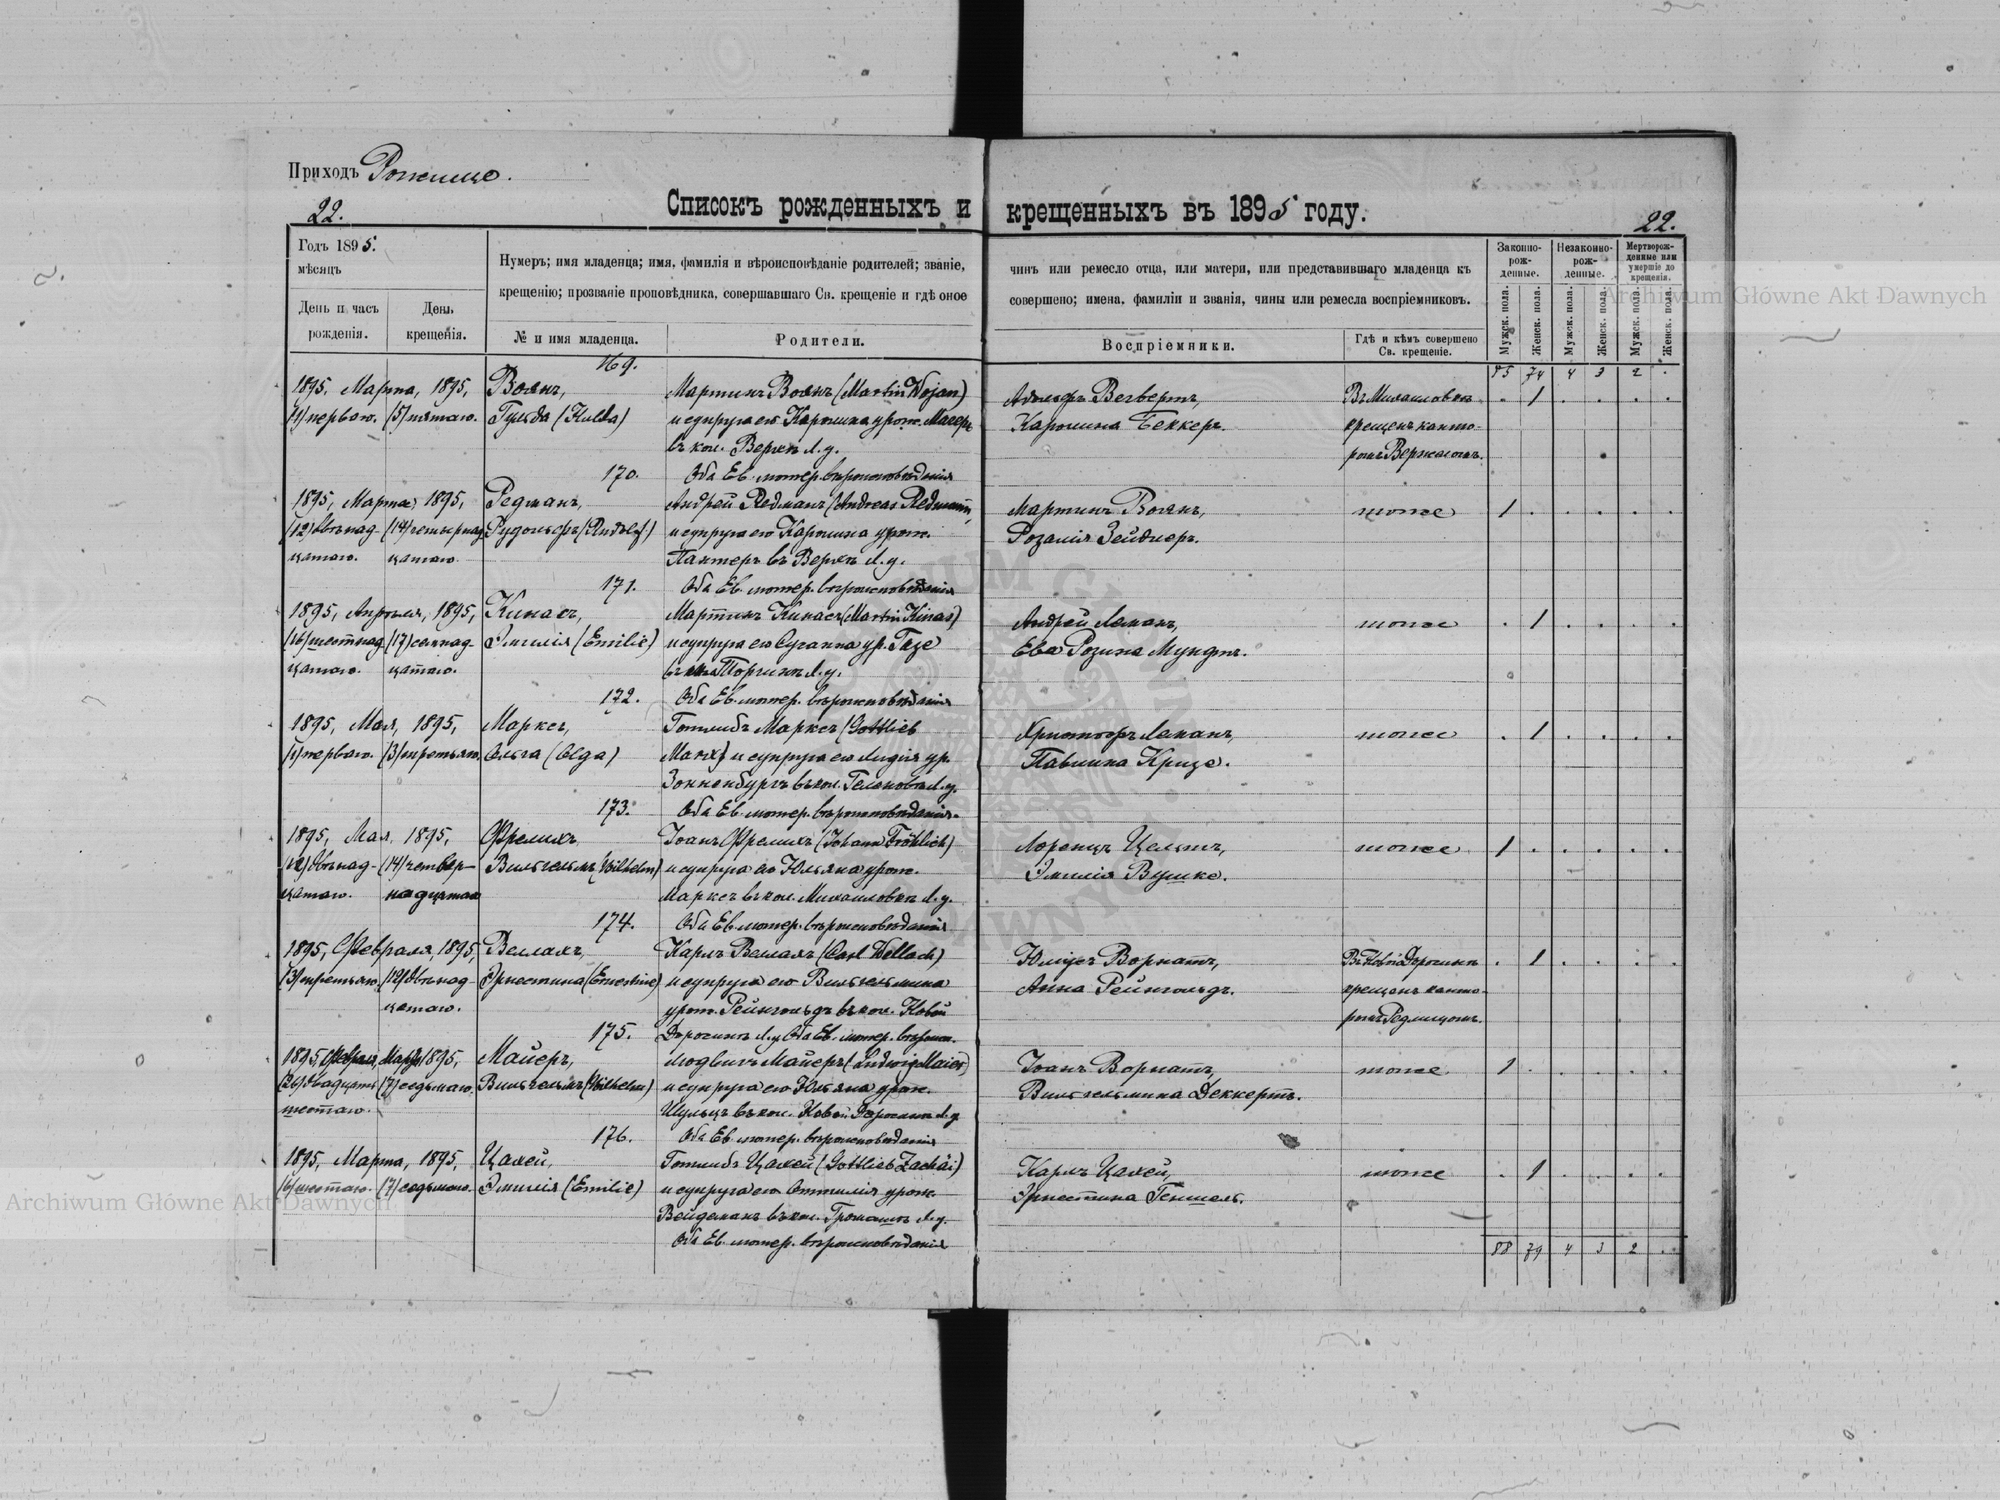 Приходъ Рожище.
22.
Списокъ рожденныхъ и крещенныхъ въ 1895 году.
22.
Годъ 1895.
мѣсяцъ
День и часъ рожденія.
День крещенія.
Нумеръ; имя младенца; имя, фамилія и вѣроисповѣданіе родителей; званіе,
крещенію; прозваніе проповѣдника, совершавшаго Св. крещеніе и гдѣ оное
№ и имя младенца.
Родители.
чинъ или ремесло отца, или матери, или представившаго младенца къ
совершено; имена, фамиліи и званія, чины или ремесла воспріемниковъ.
Воспріемники.
Гдѣ и кѣмъ совершено Св. крещеніе.
Законно-рож-денные.
Незаконно-рож-денные.
Мертворож-денные или умершіе до крещенія.
Мужск. пола.
Женск. пола.
Мужск. пола.
Женск. пола.
Мужск. пола.
Женск. пола.
85 74 4 3 2 .
169.
1895, Марта, 1895, Воянъ, Мартинъ Воянъ (Martin Wojan) Адольфъ Вегвертъ, Въ Михаловкѣ . 1 . . . .
(1) перваго. (5) пятаго. Гульда (Hulda) и супруга его Каролина урож. Магеръ Каролина Беккеръ. крещенъ канто-
въ кол. Верхѣ Л.у. ромъ
170. Оба Ев. лютер. вѣроисповѣданія
1895, Марта, 1895, Редманъ, Андрей Редманъ (Andreas Redmann) Мартинъ Воянъ, тоже 1 . . . . .
(12) двѣнад- (14) четырнад- Рудольфъ (Rudolf) и супруга его Каролина урож. Розалія Зейдлеръ.
цатаго. цатаго. въ Верхѣ Л.у.
171. Оба Ев. лютер. вѣроисповѣданія
1895, Апрѣля, 1895, Кинасъ, Мартинъ Кинасъ (Martin Kinas) Андрей Леманъ, тоже . 1 . . . .
(16) шестнад- (17) семнад- Эмилія (Emilie) и супруга его Сузанна ур. Газе Ева Розина Мундтъ.
цатаго. цатаго. Л.у.
172. Оба Ев. лютер. вѣроисповѣданія
1895, Мая, 1895, Марксъ, Готлибъ Марксъ (Gottlieb Христофъ Леманъ, тоже . 1 . . . .
(1) перваго. (3) третьяго. Ольга (Olga) Marx) и супруга его Лидія ур. Павлина Кризе.
Зонненбургъ въ кол. Л.у.
173. Оба Ев. лютер. вѣроисповѣданія.
1895, Мая, 1895, Фрелихъ, Іоанъ Фрелихъ (Johann Fröhlich) Лоренцъ тоже 1 . . . . .
(12) двѣнад- (14) четвер- Вильгельмъ (Wilhelm) и супруга его Юльяна урож. Эмилія Вушке.
цатаго. надцатаго Марксъ въ кол. Михаловкѣ Л.у.
174. Оба Ев. лютер. вѣроисповѣданія
1895, Февраля, 1895, Веллахъ, Карлъ Веллахъ (Carl Wellach) Юліусъ Ворнатъ, Въ Новой Дорогинѣ . 1 . . . .
(3) третьяго (12) двѣнад- Эрнестина (Ernestine) и супруга его Вильгельмина Анна Рейнгольдъ. крещенъ канто-
цатаго. урож. Рейнгольдъ въ кол. Новой ромъ
175. Дорогинѣ Л.у. Оба Ев. лютер. вѣроисп.
1895, Февраля, Марта 1895, Майеръ, Людвигъ Майеръ (Ludwig Maier) Іоанъ Ворнатъ, тоже 1 . . . . .
(26) двадцать (7) седьмаго. Вильгельмъ (Wilhelm) и супруга его Юльяна урож. Вильгельмина Деккертъ.
шестаго. Шульцъ въ кол. Новой Дорогинѣ Л.у.
176. Оба Ев. лютер. вѣроисповѣданія
1895, Марта, 1895, Цахей, Готлибъ Цахей (Gottlieb Zachäi) Карлъ Цахей, тоже . 1 . . . .
(6) шестаго. (7) седьмаго. Эмилія (Emilie) и супруга его Оттилія урож. Эрнестина Геншель.
Вейдеманъ въ кол. Л.у.
Оба Ев. лютер. вѣроисповѣданія
88 79 4 3 2 .
Archiwum Główne Akt Dawnych
Archiwum Główne Akt Dawnych